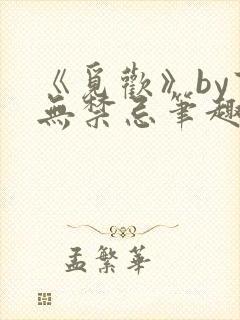 《覓歡》by
無禁忌筆趣
孟繁華